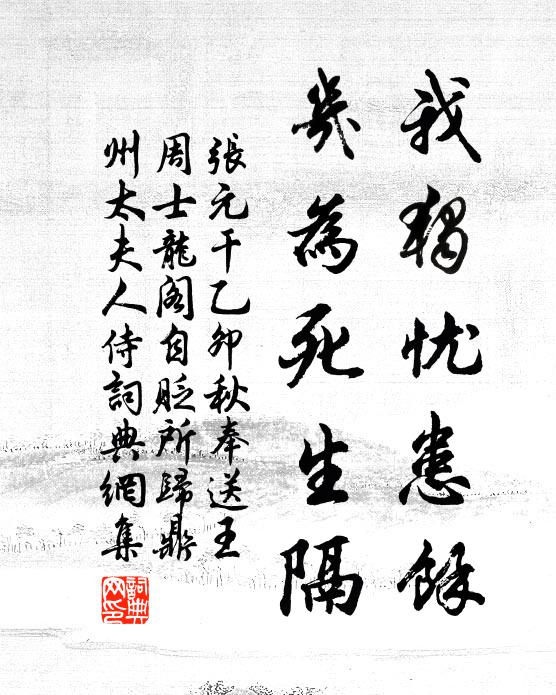 我獨忧患餘
幾為死生隔
張元干乙卯秋奉送王
周士龍阁自貶所歸鼎
州太夫人侍詞典網集
詞典
网印